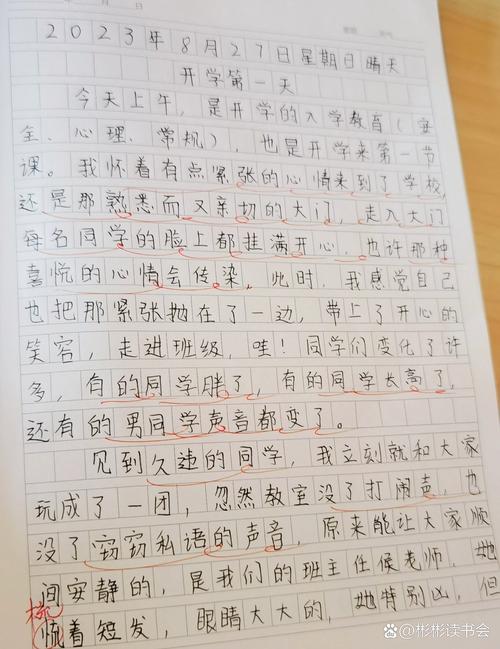 2023年8月27日星期日晴天
开学第一天
今天上午，是开学的入学教育（安
全、心理、常规），也是开学来第一节
课。我怀着有点紧张的心情来到了学校，
还是那熟悉而又亲切的大门，走入大门
每名同学的脸上都挂满开心，也许那种
喜悦的心情会传染，此时，我感觉自己
也把那紧张抛在了一边，带上了开心的
笑容，走进班级，哇！同学们变化了许
多，有的同学胖了，有的同学长高了，
还有的男同学声音都变了。
见到久违的同学，我立刻就和大家
玩成了一团，忽然教室没了打闹声，也
没了窃窃私语的声音，原来能让大家顺
间安静的，是我们的班主任侯老师，她
梳
梳着短发，眼睛大大的，她特别凶，但
@彬彬读书会